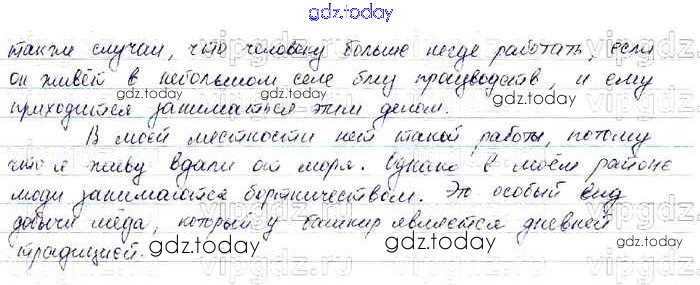 gdz.today
также случаи, что человеку больше негде работать, если
он живёт в небольшом селе без производств, и ему
приходится заниматься этим делом.
В моей местности нет такой работы, потому
что я живу вдали от моря. Однако в моём районе
люди занимаются бортничеством. Это особый вид
добычи мёда, который у башкир является древней
традицией.
gdz.today
gdz.today
gdz.today
gdz.today
gdz.today
gdz.today